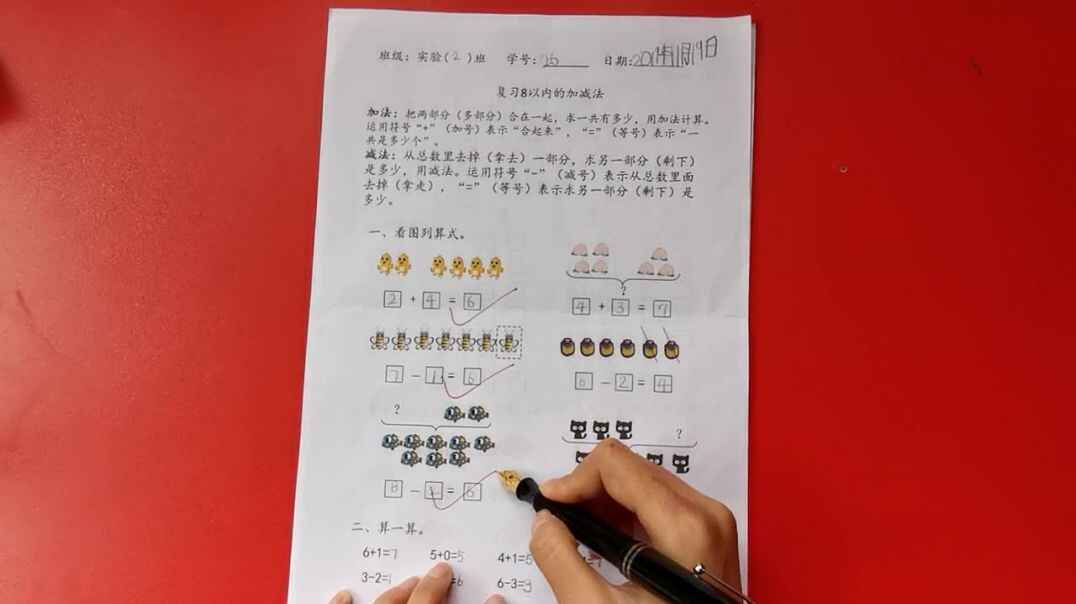 班级：实验（2）班 学号：26 日期：2019年11月19日
复习8以内的加减法
加法：把两部分（多部分）合在一起，求一共有多少，用加法计算。
运用符号“+”（加号）表示“合起来”，“=”（等号）表示“一
共是多少个”。
减法：从总数里去掉（拿去）一部分，求另一部分（剩下）
是多少，用减法。运用符号“-”（减号）表示从总数里面
去掉（拿走），“=”（等号）表示求另一部分（剩下）是
多少。
一、看图列算式。
2 + 4 = 6
?
4 + 3 = 7
7 - 1 = 6
6 - 2 = 4
?
?
8 - = 6
二、算一算。
6+1=7 5+0=5 4+1=5
3-2=1 =6 6-3=3